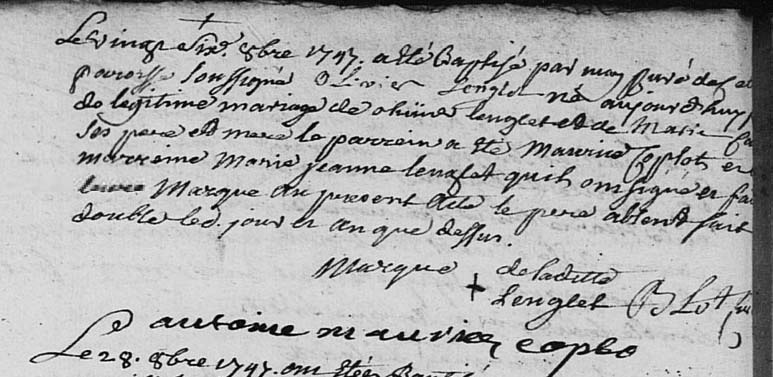 Le vingt Six.e 8bre 1747. a Eté Baptisé par moy Curé de
paroisse Soussigné Olivier Lenglet né aujourd'huy
de legitime mariage de lenglet et de Marie
Ses pere et mere le parrein a Eté Maurice Coplot et
marreine Marie jeanne lenglet quih ont signé et
Marque au present acte le pere absent fait
double led. jour et an que dessus.
Marque + de laditte
Lenglet
antoine maurice coplo
Le 28. 8bre 1747. ont Etées